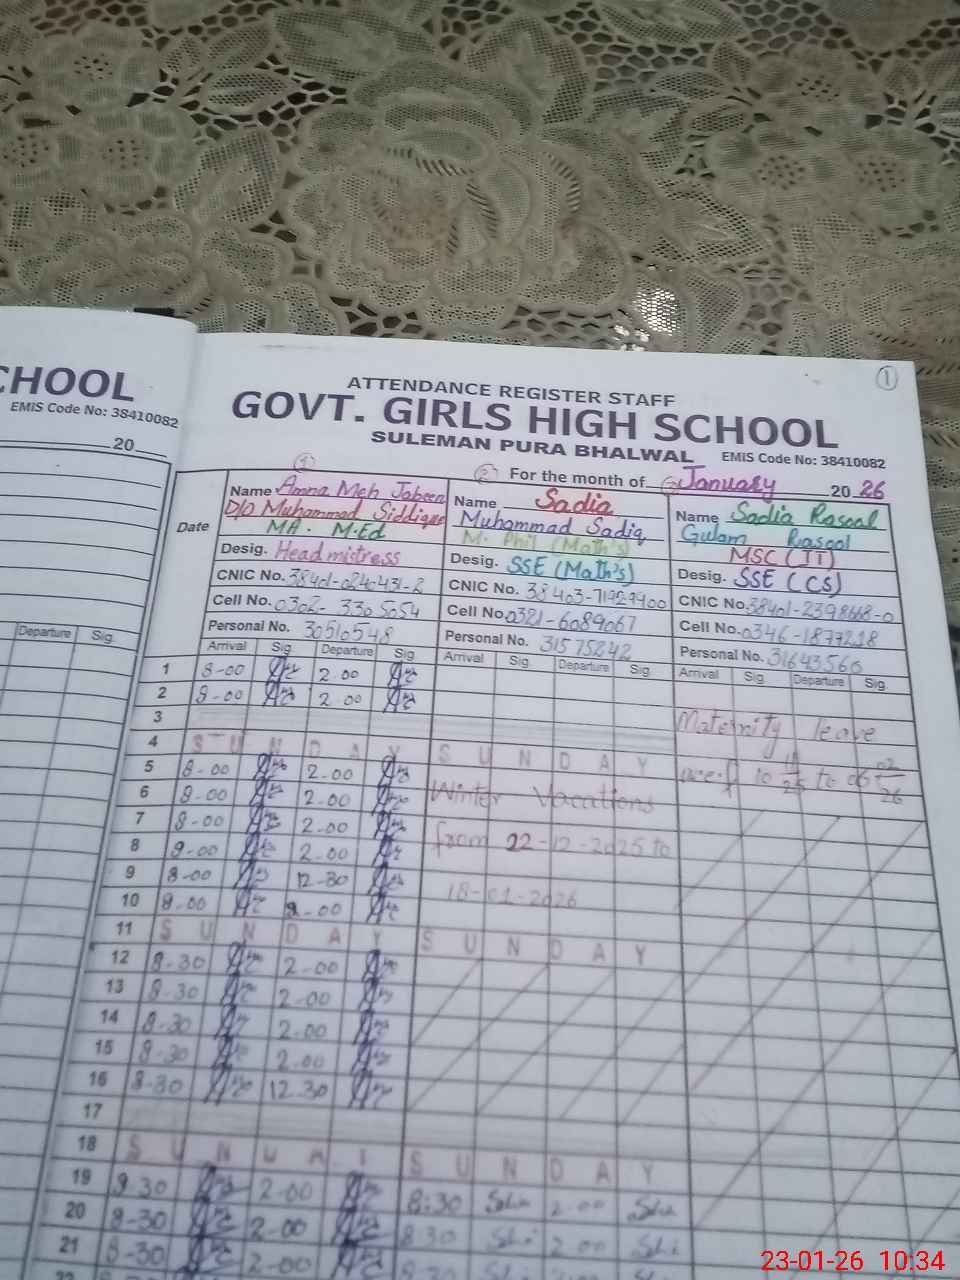 CHOOL
EMIS Code No: 38410082
20
Departure Sig.
①
ATTENDANCE REGISTER STAFF
GOVT. GIRLS HIGH SCHOOL
SULEMAN PURA BHALWAL EMIS Code No: 38410082
For the month of January 2026
Date
① Name Amna Meh Jabeen
D/o Muhammad Siddique
MA. M.Ed
Desig. Headmistress
CNIC No. 38401-0240431-2
Cell No. 0302-3305054
Personal No. 30510548
Arrival Sig. Departure Sig.
② Name Sadia
Muhammad Sadiq
M. Phil (Math's)
Desig. SSE (Math's)
CNIC No. 38403-71929900
Cell No. 0321-6089067
Personal No. 31575242
Arrival Sig. Departure Sig.
Name Sadia Rasool
Gulam Rasool
MSC (IT)
Desig. SSE (CS)
CNIC No. 38401-2398668-0
Cell No. 0346-1877218
Personal No. 31643566
Arrival Sig. Departure Sig.
1 8-00 2.00
2 9-00 2.00
3 Maternity leave
4 SUNDAY SUNDAY
w.e.f 10 to 06
5 8-00 2.00
6 9-00 2.00 Winter Vacations
7 8-00 2.00
8 9-00 2.00 from 22-12-2025 to
9 8-00 12-30
10 8-00 2-00 18-01-2026
11 SUNDAY SUNDAY
12 8-30 2-00
13 8-30 2-00
14 8-30 2-00
15 8-30 2.00
16 8-30 12.30
17
18 SUNDAY SUNDAY
19 9.30 2-00 8:30 2-00
20 8-30 2-00 8 30 2 00
21 8-30 2-00
23-01-26 10:34